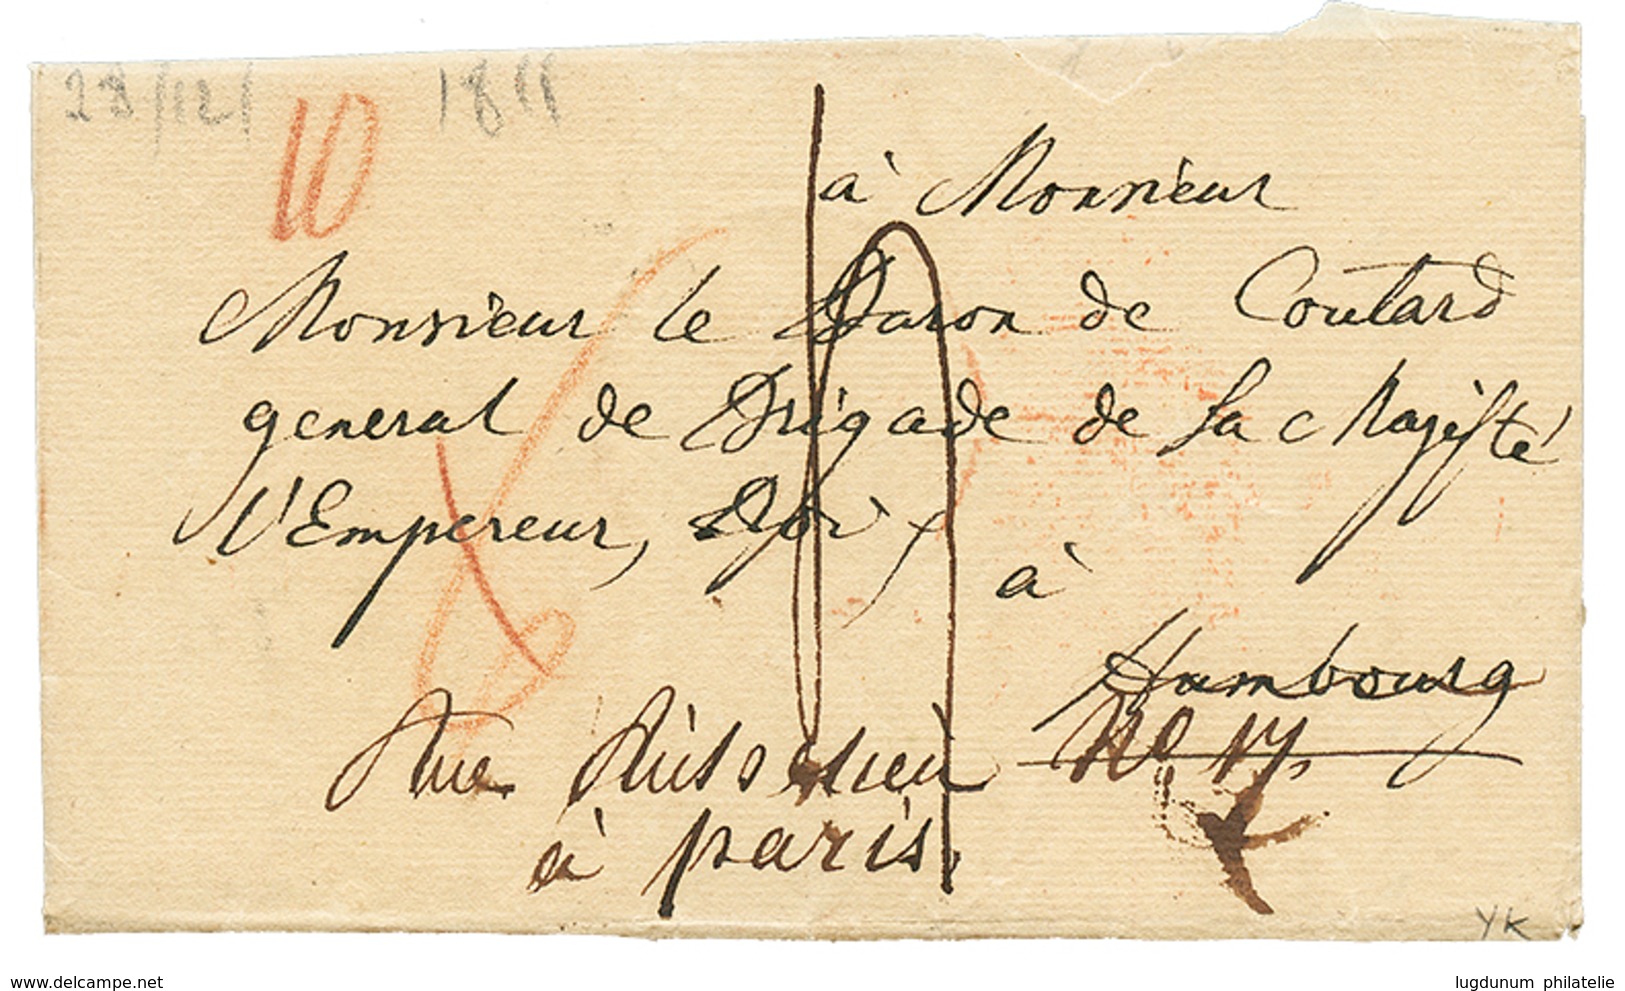 28/12/ 1811
10
à Monsieur
Monsieur le Baron de Coutard
general de Brigade de Sa Majesté
l'Empereur, Roi
à
Hambourg
Rue
No 17
à paris.
YK
delcampe.net
lugdunum philatelie